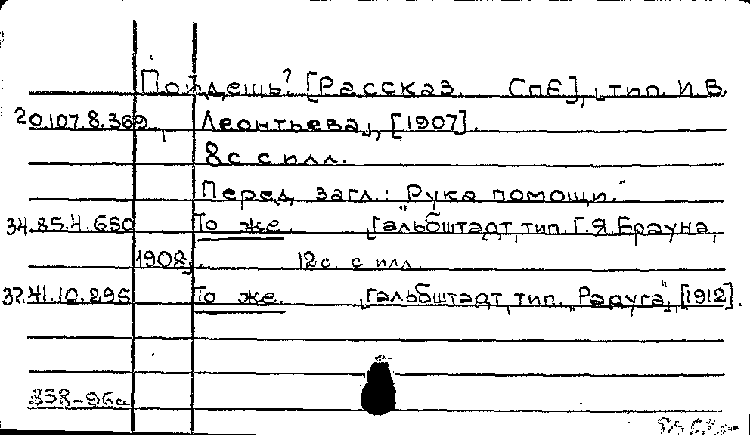 Пойдешь? [Рассказ. Спб], тип. И.В.
20.107.8.369 Леонтьева, [1907].
8с с илл.
Перед загл.: "Рука помощи."
34.85.4.650 То же. Гальбштадт, тип. Г.Я.Брауна,
1908. 12с с илл.
37.41.10.295 То же. Гальбштадт, тип. "Радуга", [1912].
838-96а